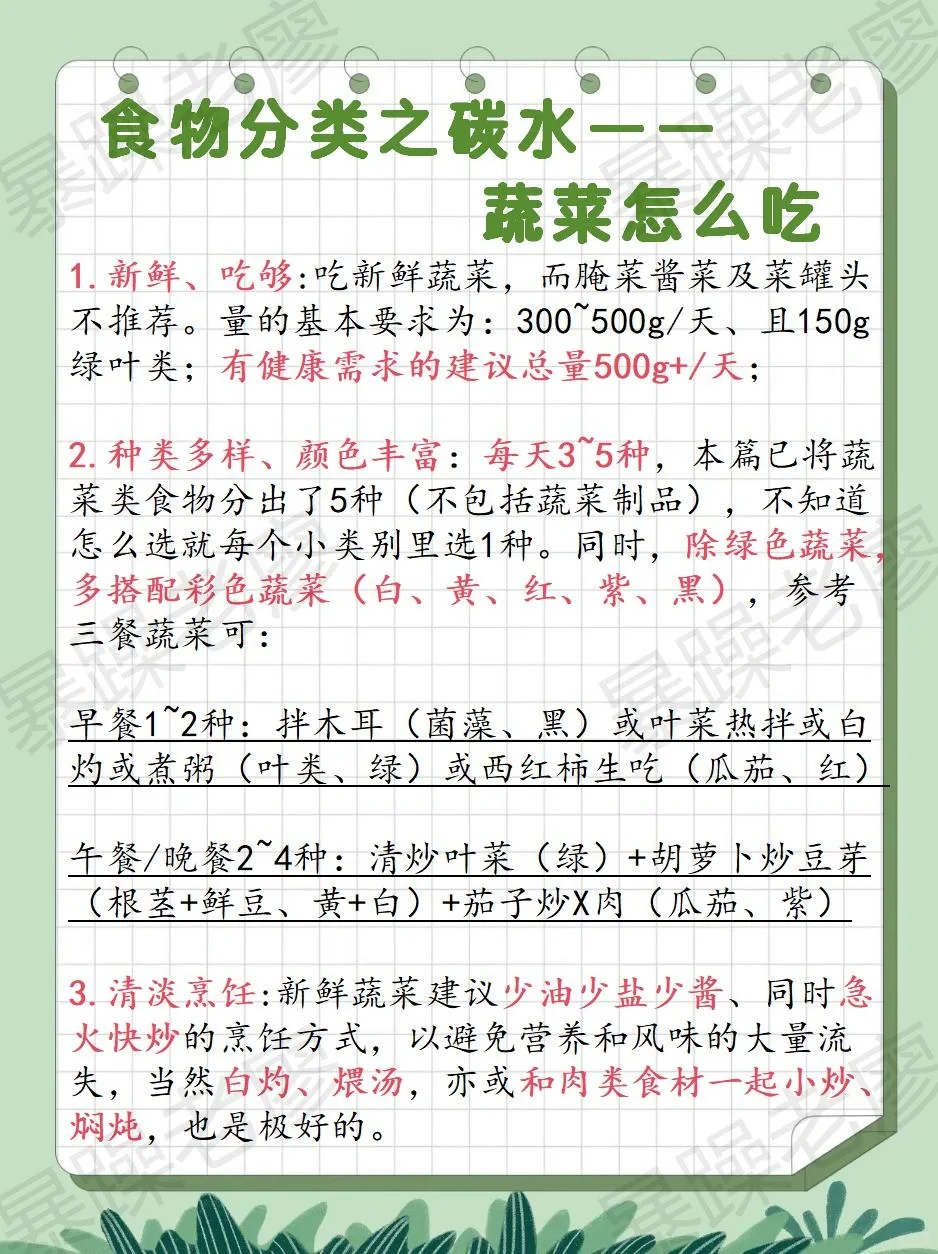 食物分类之碳水——
蔬菜怎么吃
1.新鲜、吃够:吃新鲜蔬菜，而腌菜酱菜及菜罐头
不推荐。量的基本要求为：300~500g/天、且150g
绿叶类；有健康需求的建议总量500g+/天；
2.种类多样、颜色丰富：每天3~5种，本篇已将蔬
菜类食物分出了5种（不包括蔬菜制品），不知道
怎么选就每个小类别里选1种。同时，除绿色蔬菜，
多搭配彩色蔬菜（白、黄、红、紫、黑），参考
三餐蔬菜可：
早餐1~2种：拌木耳（菌藻、黑）或叶菜热拌或白
灼或煮粥（叶类、绿）或西红柿生吃（瓜茄、红）
午餐/晚餐2~4种：清炒叶菜（绿）+胡萝卜炒豆芽
（根茎+鲜豆、黄+白）+茄子炒X肉（瓜茄、紫）
3.清淡烹饪:新鲜蔬菜建议少油少盐少酱、同时急
火快炒的烹饪方式，以避免营养和风味的大量流
失，当然白灼、煨汤，亦或和肉类食材一起小炒、
焖炖，也是极好的。
暴躁老廖
暴躁老廖
暴躁老廖
暴躁老廖
暴躁老廖
暴躁老廖